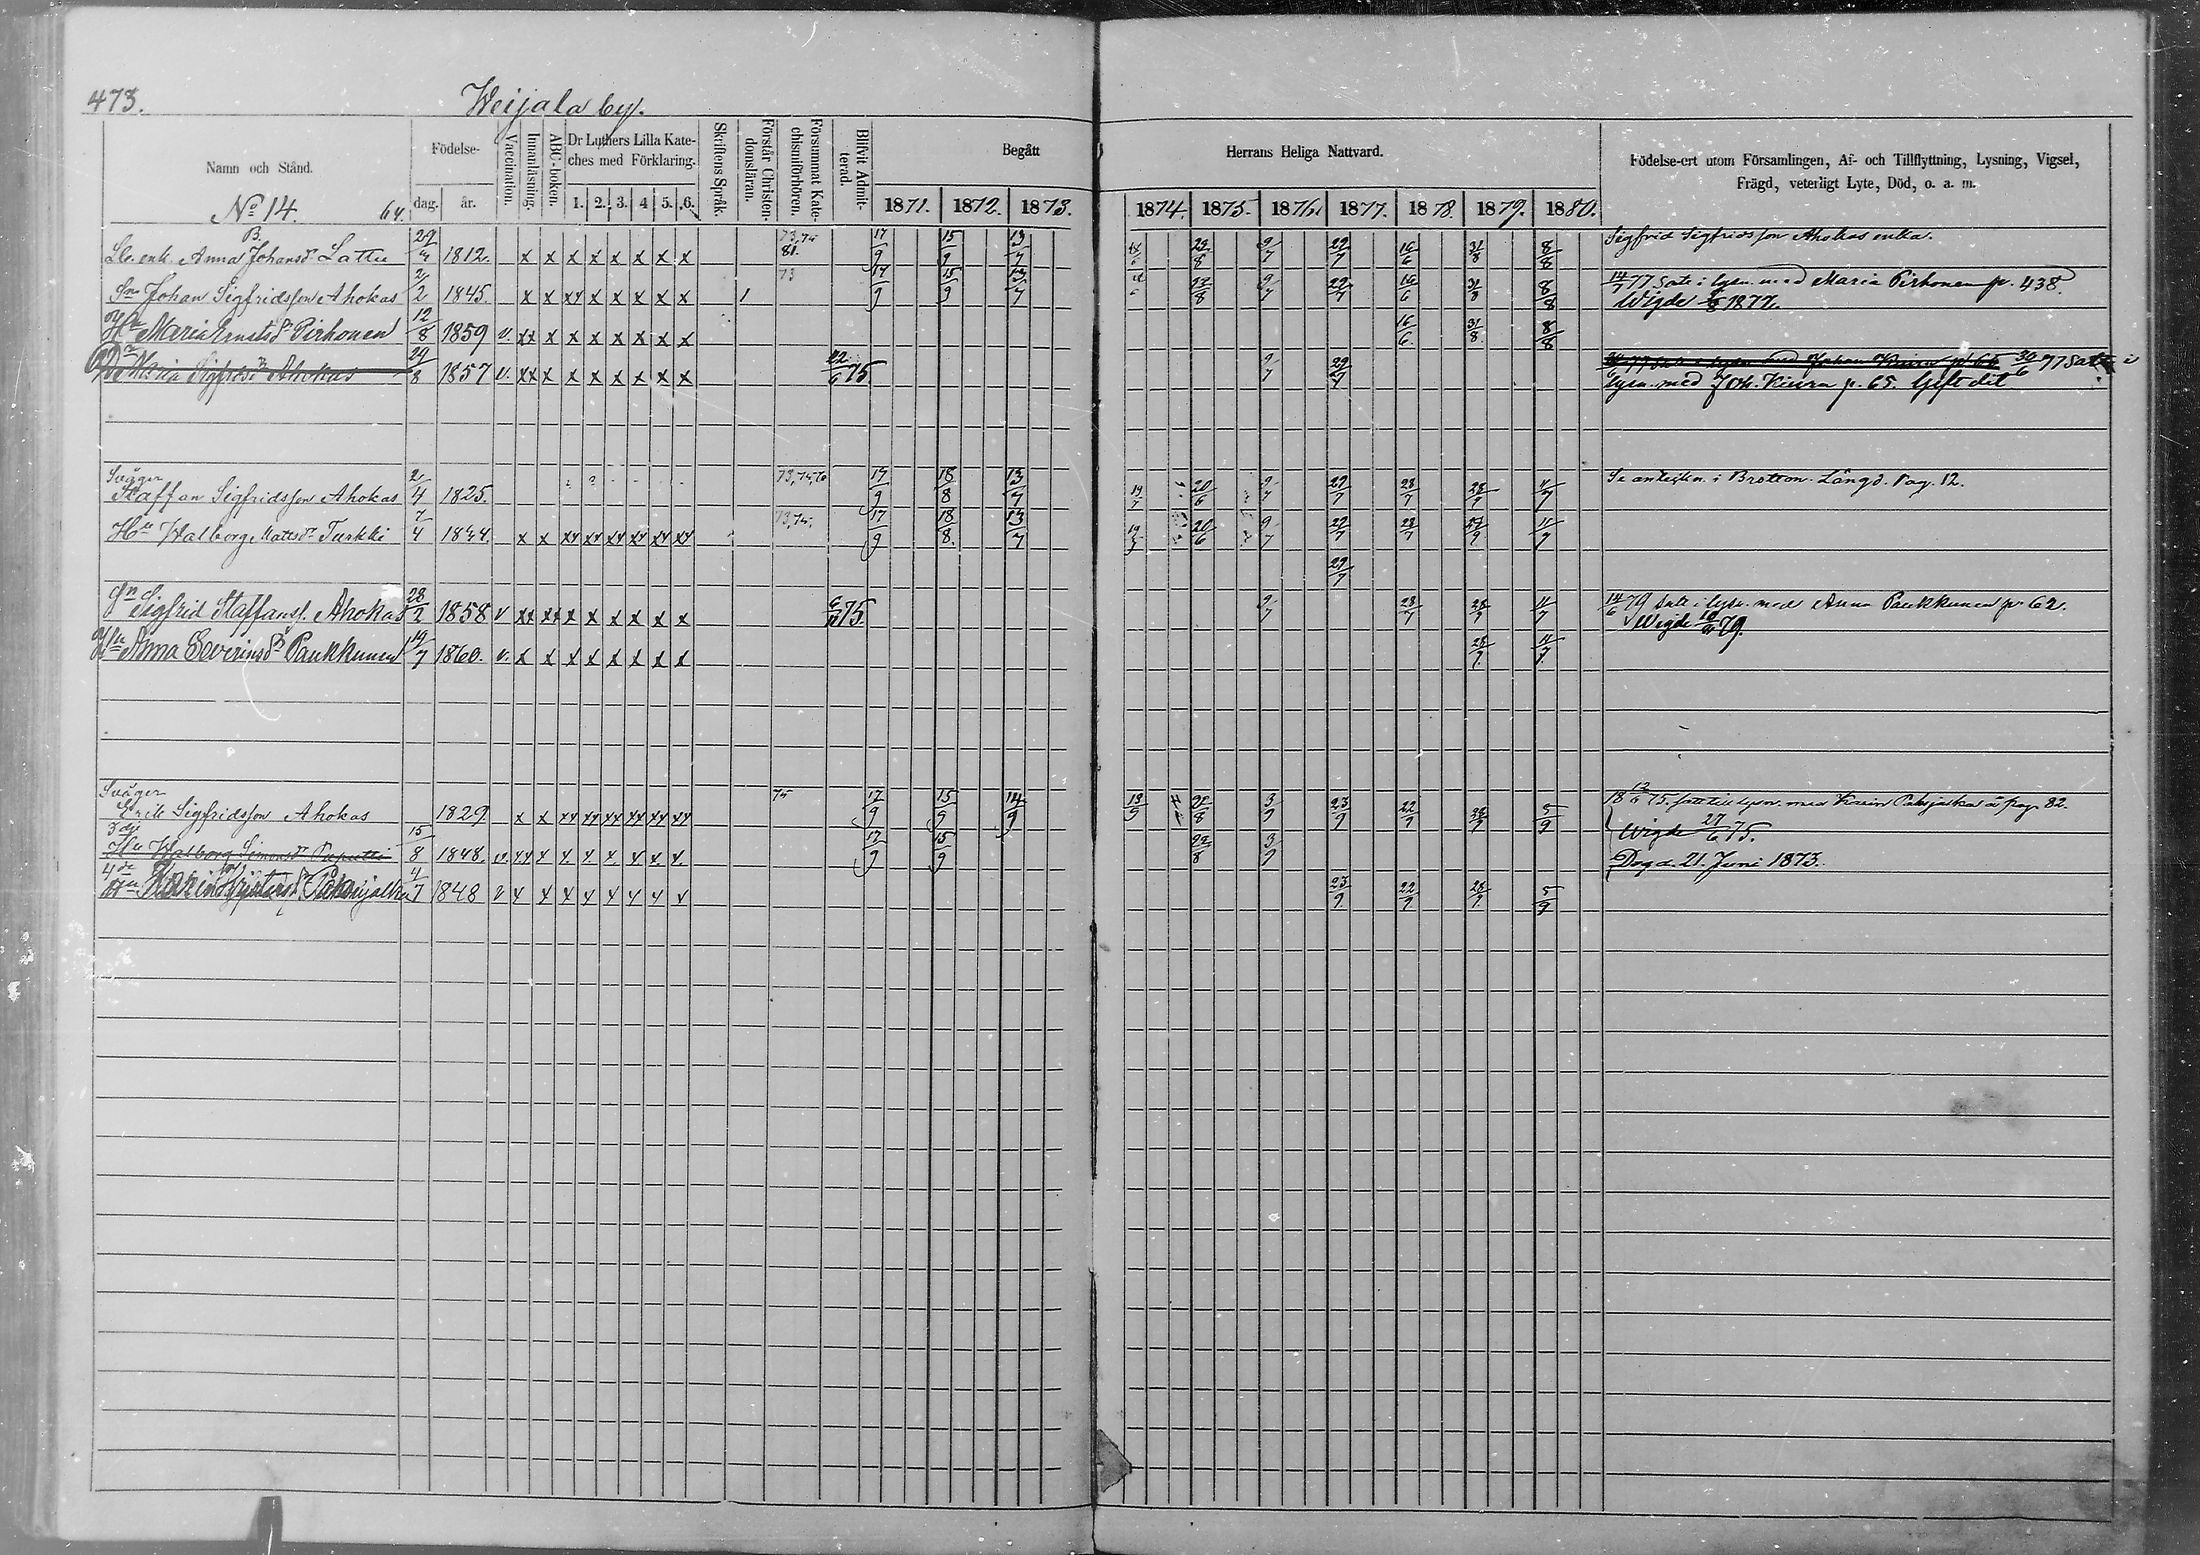 473.
Weijala by.
Namn och Stånd.
Födelse-
dag. år.
Vaccination.
Innanläsning.
ABC-boken.
Dr Luthers Lilla Kate-
ches med Förklaring.
1. 2. 3. 4 5. 6.
Skriftens Språk.
Förstår Christen-
domsläran.
Försummat Kate-
chismiförhören.
Blifvit Admit-
terad.
Begått Herrans Heliga Nattvard.
1871. 1872. 1873. 1874. 1875. 1876. 1877. 1878. 1879. 1880.
Födelse-ort utom Församlingen, Af- och Tillflyttning, Lysning, Vigsel,
Frägd, veterligt Lyte, Död, o. a. m.
No 14. 64.
B.
enk. Anna Johansdr Lattu 29/4 1812. x x x x x x x x 73,74 81. 17/9 15/9 13/7 9/7 22/7 16/6 31/8 8/8 Sigfrid Sigfridsson Ahokas enka.
Sn Johan Sigfridsson Ahokas 2/2 1845. x x xx x x x x x 1 73 17/9 15/9 13/7 9/7 22/7 16/6 31/8 8/8 14/7 77 Sate i lysn. med Maria Pirhonen p. 438.
Wigde 1877.
Hu Maria Ernstsdr Pirhonen 12/8 1859 v. xx x x x x x x x 16/6. 31/8. 8/8
Dr Maria Sigfridsdr Ahokas 29/8 1857 v. xx x x x x x x x 22/6 75. 9/7 29/7 30/6 77 Sate i
lysn. med Joh. Kiuru p. 65. Gift dit
Svåger
Staffan Sigfridsson Ahokas 2/4 1825. 73,74,76 17/9 18/8 13/7 19/7 20/6 9/7 22/7 28/7 28/9 11/7 Se anteckn. i Brotton. Längd. Pag. 12.
Hu Walborg Mattsdr Turkki 7/4 1844. x x xx xx xx xx xx xx 73,74, 17/9 18/8. 13/7 19/7 20/6 9/7 22/7 28/7 11/7
29/7
Sn Sigfrid Staffanss. Ahokas 28/2 1858 v xx xx x x x x x x 75. 9/7 28/7 11/7 14/6 79 Sate i lysn. med Anna Paukkunen p. 62.
Wigde 79.
Hu Anna Severinsdr Paukkunen 19/7 1860. v. x x x x x x x x 11/7.
Svåger
Erik Sigfridsson Ahokas 1829 x x xx xx xx xx xx xx 74 17/9 15/9 14/9 13/9 22/8 3/9 23/9 22/9 5/9 18 12/6 75. satt till lysn. med Karin på pag. 82.
Wigde 27/6 75.
3dje
Hu Walborg Simonsdr Paputti 15/8 1848. v. xx x x x x x x x 17/9 15/9 22/8 3/9 Dog d. 21. Juni 1873.
4de
Hu Karin 4/7 1848 v x x x x x x x x 23/9 22/9 5/9